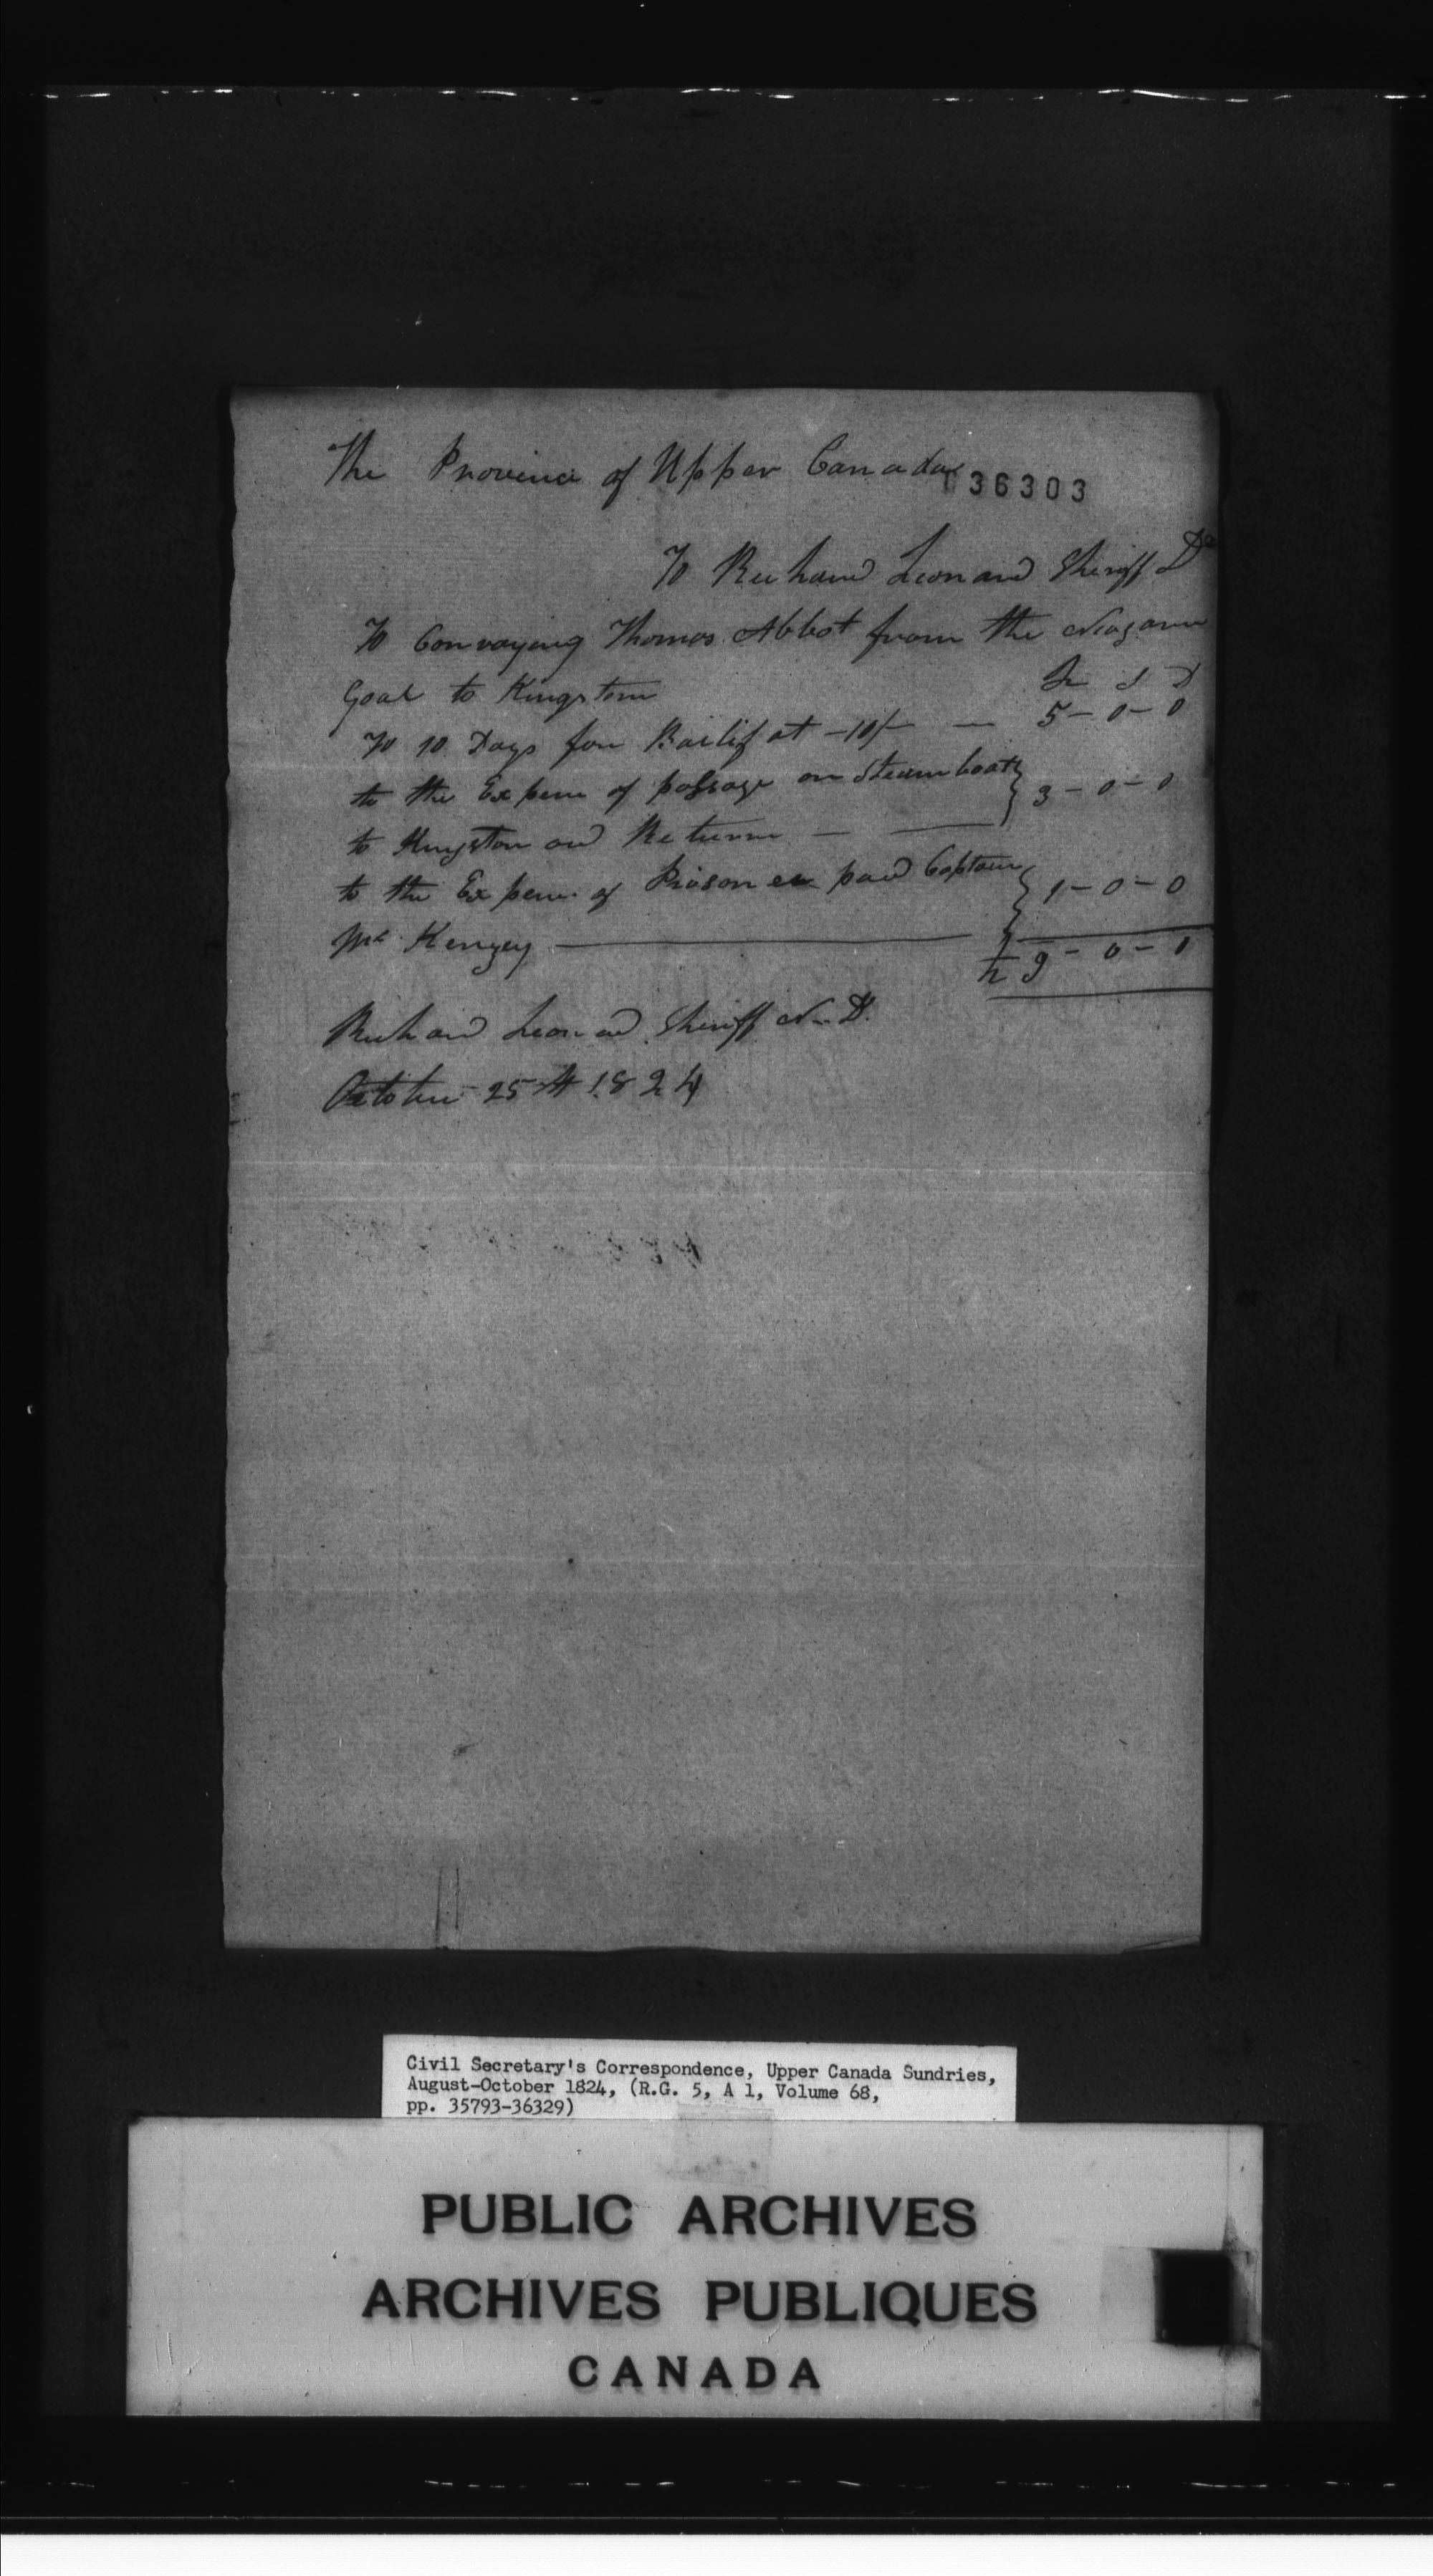 The Province of Upper Canada
36303
To Richard Leonard Sheriff Dr
To Conveying Thomas Abbot from the Niagara
Goal to Kingston
L S D
To 10 Days for Bailif at -10/- — 5-0-0
to the Expence of passage on Steamboat } 3-0-0
to Kingston and Returne — —
to the Expence of Prisoner paid Captain } 1-0-0
Mc Kenzey —
L 9-0-0
Richard Leonard Sheriff N.D.
October 25th 1824
Civil Secretary's Correspondence, Upper Canada Sundries,
August-October 1824, (R.G. 5, A 1, Volume 68,
pp. 35793-36329)
PUBLIC ARCHIVES
ARCHIVES PUBLIQUES
CANADA